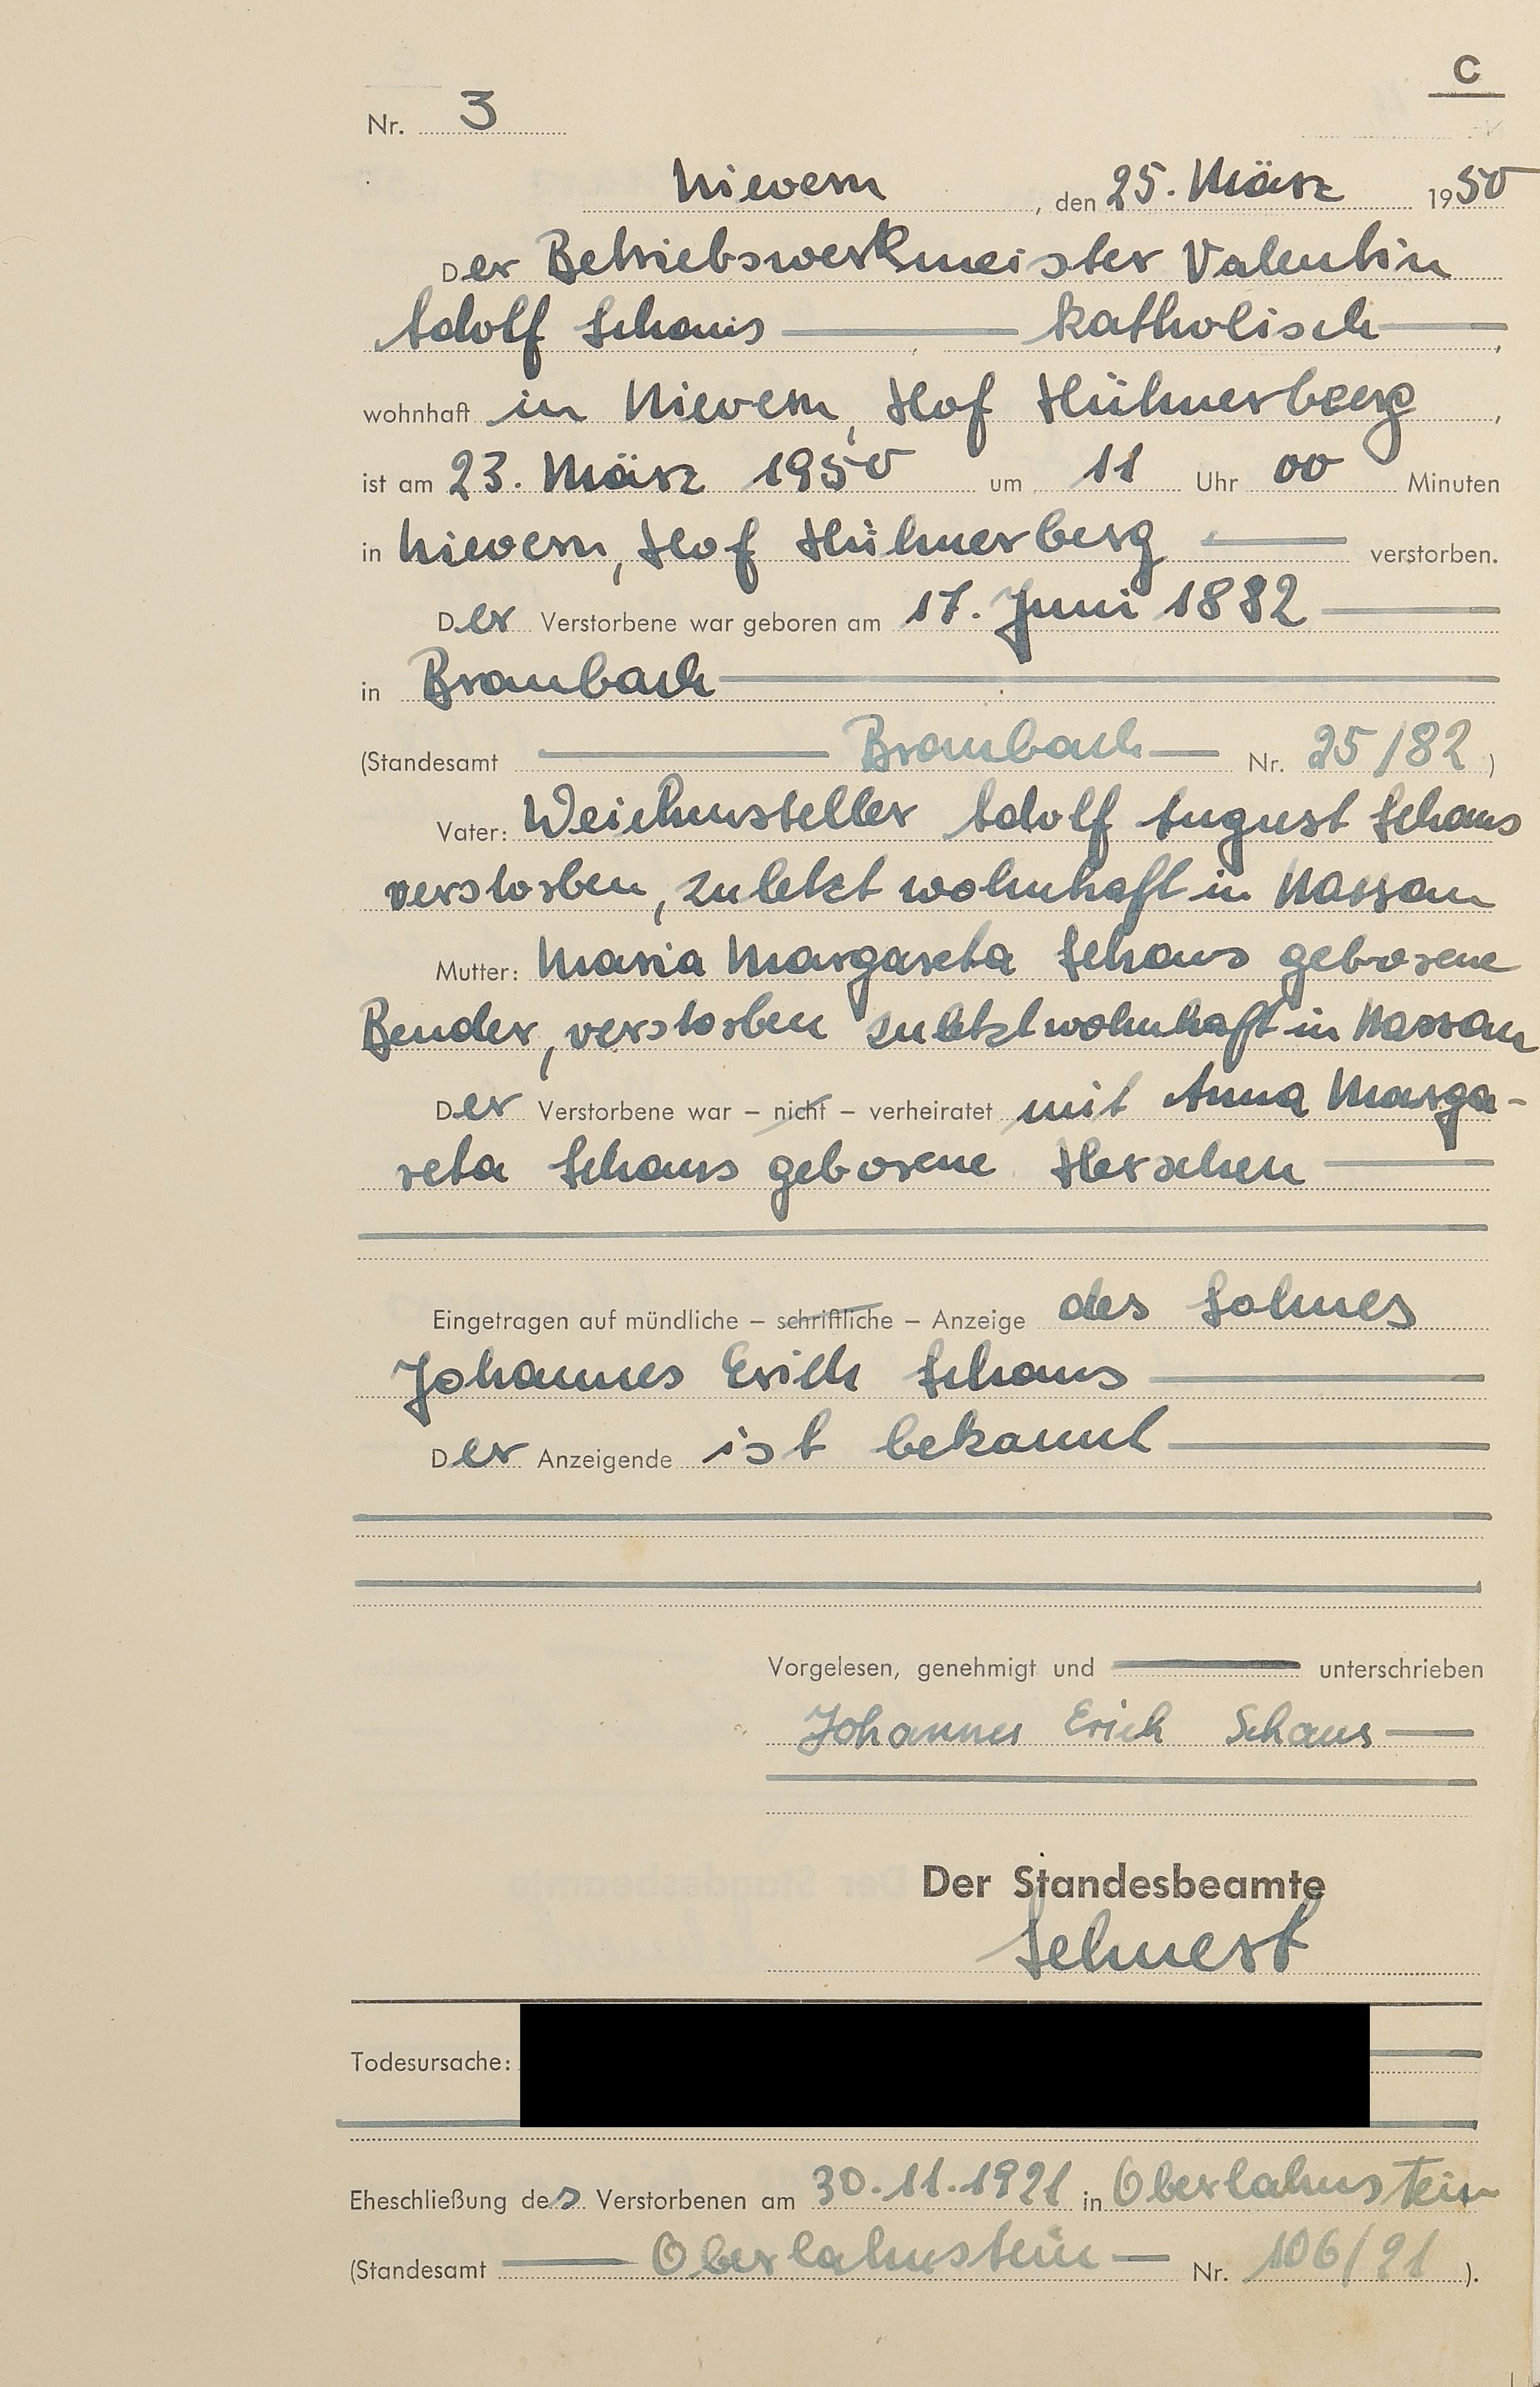 C
Nr. 3
Nievern, den 25. März 1950
Der Betriebswerkmeister Valentin
Adolf Schaus katholisch,
wohnhaft in Nievern, Hof Hühnerberg,
ist am 23. März 1950 um 11 Uhr 00 Minuten
in Nievern, Hof Hühnerberg verstorben.
Der Verstorbene war geboren am 17. Juni 1882
in Braubach
(Standesamt Braubach Nr. 25/82)
Vater: Weichensteller Adolf August Schaus
verstorben, zuletzt wohnhaft in Nassau
Mutter: Maria Margareta Schaus geborene
Bender, verstorben zuletzt wohnhaft in Nassau
Der Verstorbene war – nicht – verheiratet mit Anna Marga-
reta Schaus geborene Herschen
Eingetragen auf mündliche – schriftliche – Anzeige des Sohnes
Johannes Erich Schaus
Der Anzeigende ist bekannt
Vorgelesen, genehmigt und unterschrieben
Johannes Erich Schaus
Der Standesbeamte
Sehnert
Todesursache:
Eheschließung des Verstorbenen am 30.11.1921 in Oberlahnstein
(Standesamt Oberlahnstein Nr. 106/21).